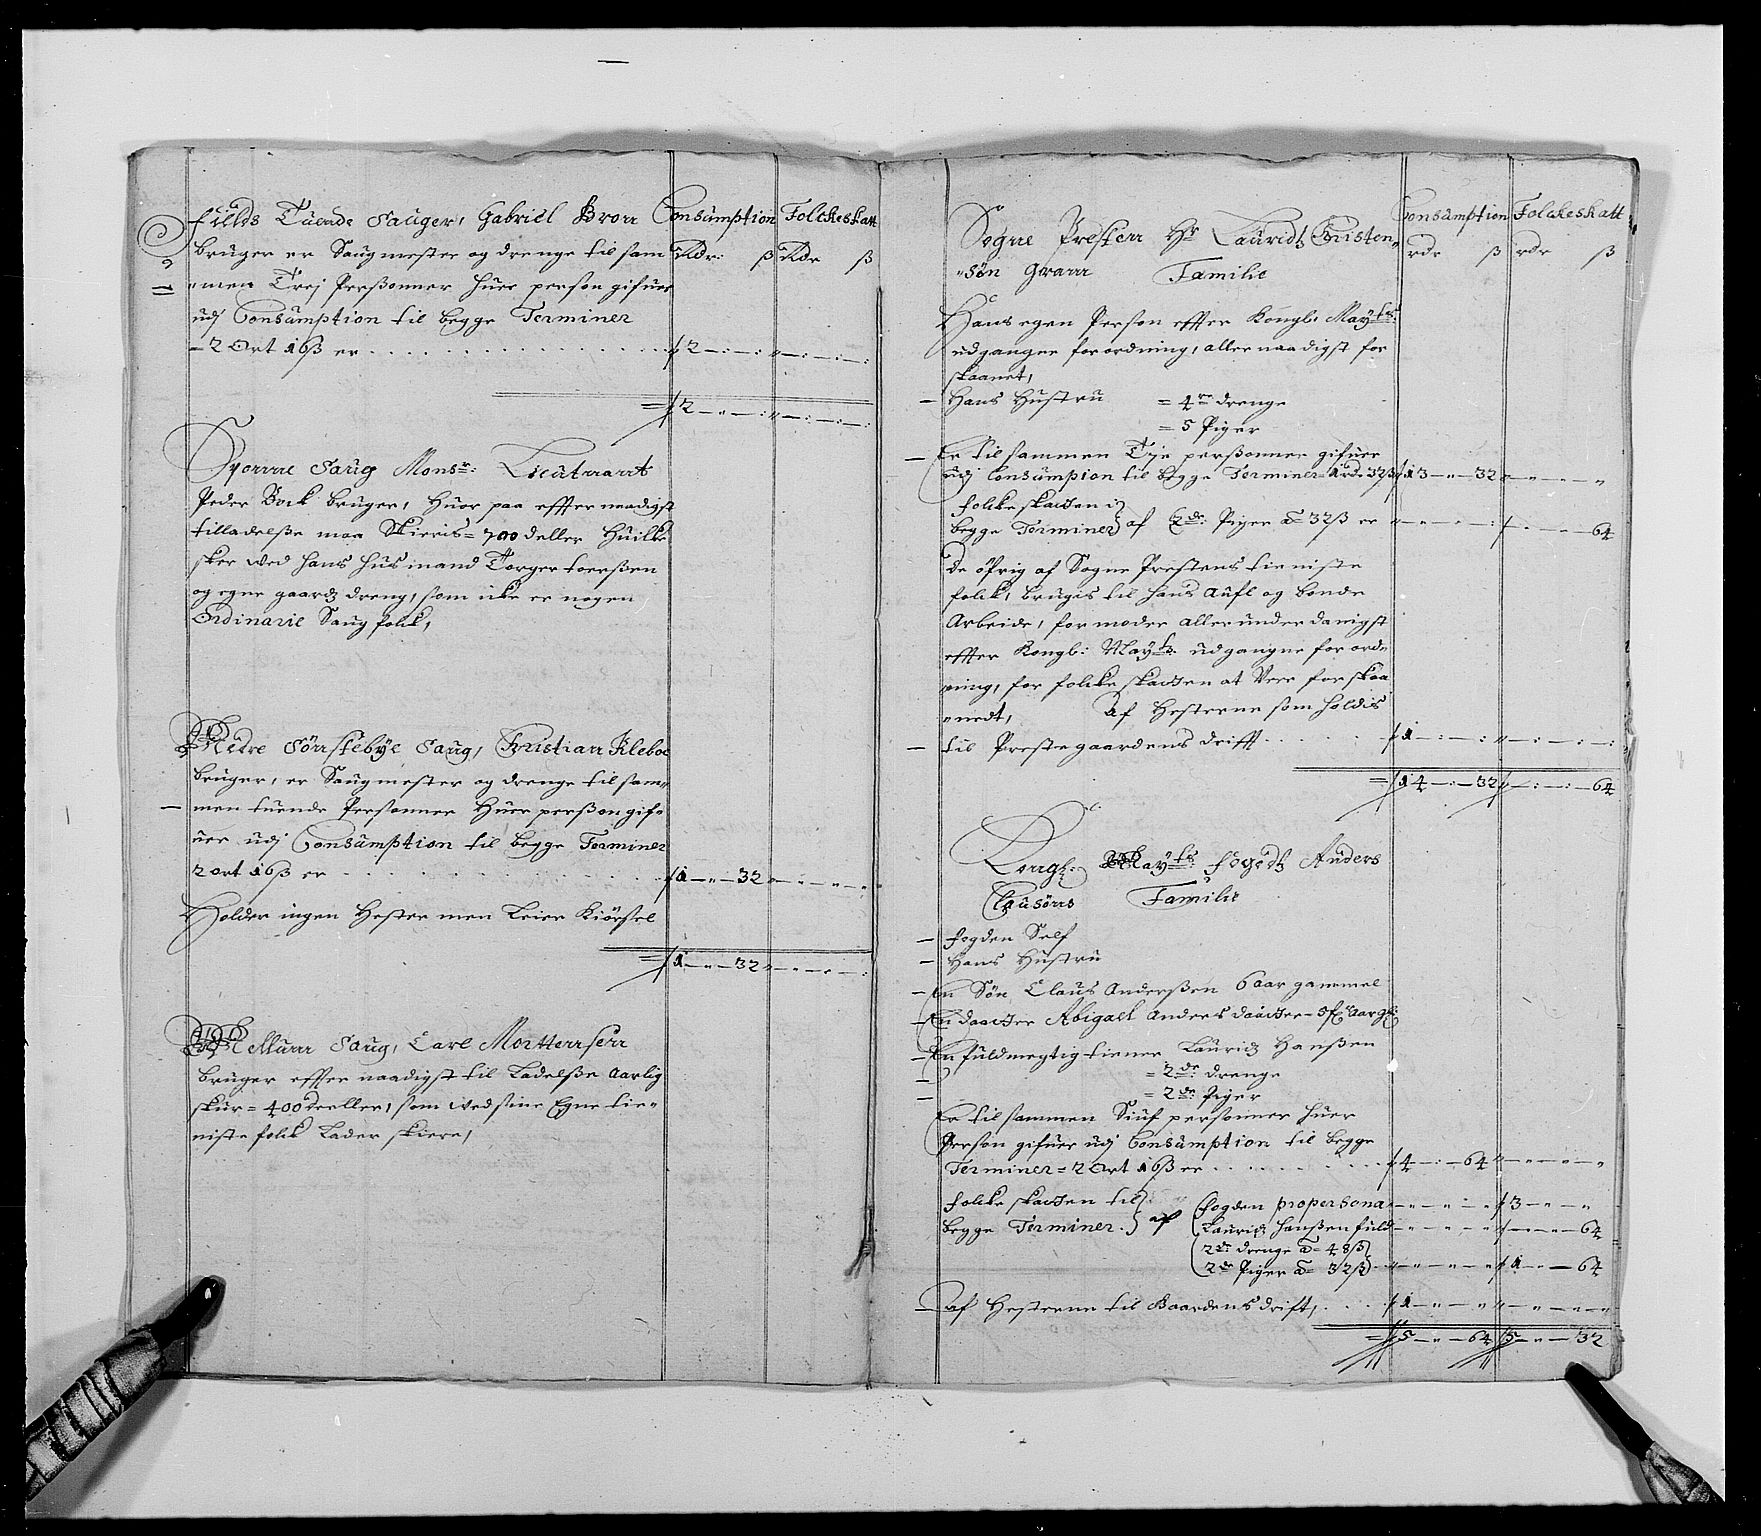 fulds Tuende Sauger, Gabriel Brorr Consumption Folckeskatt
bruger er Saugmester og drenge til sam Rdr: ß Rdr ß
men Trej Perßonner huer person gifuer
udj Consumption til begge Terminer
2 Ort 16ß er . . . . 2 — : — :
2 — " — :
Saug Monsr: Lieutnant
Peder Bock bruger, huor paa effter naadigst
tilladelße maa Skieris = 700 deller huilke
sker wed hans husmand Torger Toerßen
og egne gaards dreng, som icke er nogen
Ordinarie Saug folck,
Nedre Saug, Christian Kleboe
bruger, er Saugmester og drenge til sam
men tuende Personner huer perßon gif
uer udj Consumption til begge Terminer
2 ort 16ß er . . . . 1 — " — 32
Holder ingen hester men Leier Kiörsel
1 — " — 32
Mellum Saug, Carl Morttenssen
bruger effter naadigst til Ladelße Aarlig
skur = 400 deeller, som wed sine Egne tie
niste folck Lader skiere,
Sogne Presten Hr Lauridz Christen Consumption Folckeskatt
sön Familie rdr ß rdr ß
Hans egen Person effter Kongl: Mayts:
udgangne forordning, aller naadigst for
skaanet,
— Hans Hustru = 4re drenge
= 5 Piger
— Er til sammen Tije perßonner gifuer
udj Consumption til begge Terminer 1 rdr 32ß 13 — " — 32
folcke skatten i
begge Terminer af 2de: Piger a 32ß er 64
De öfrig af Sogne Prestens tieniste
folck, bruges til hans aufl og bonde
Arbeide, formoder allerunderdanigst
effter Kongl: Mayts: udgangne forord
ning, for folcke skatten at Vere forskaa
nedt, Af Hesterne som holdis
— til Prestegaardens drifft . . . . 1 — : — :
14 — : — 32 — : — : — 64
Kongl: Mayts: fogedt Anders
Clausöns Familie
— fogden Self
— Hans Hustru
— En Sön Claus Anderßen 6 aar gammel
— En daatter Abigael Anders daatter
— En fuldmegtig tiener Lauridz Hanßen
— = 2de: drenge
— = 2de Piger
Er til sammen Siuf personner huer
Person gifuer udj Consumption til begge
Terminer = 2 Ort 16ß er . . . . 4 — : — 64
folcke skatten til
begge Terminer. af fogden propersona 3 — " — "
Lauridz Hanßen fuld 64
2de drenge a 48ß
2de Piger a 32ß 1 — " — 64
— af Hesterne til Gaardens drift, . . . 1 — " — "
5 — " — 64 5 — " — 32